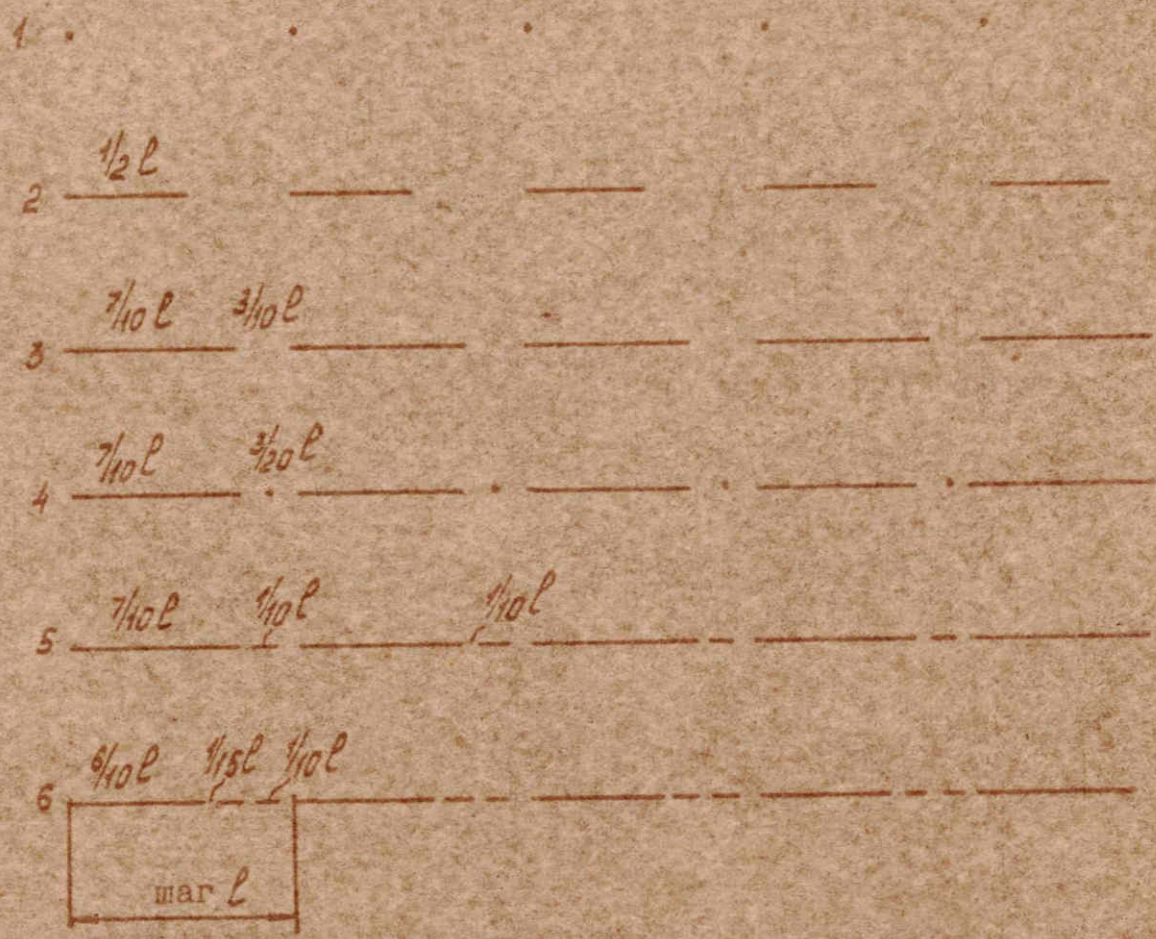 1
1/2 l
2
7/10 l 3/10 l
3
7/10 l 3/20 l
4
7/10 l 1/10 l 1/10 l
5
6/10 l 1/15 l 1/10 l
6
шаг l